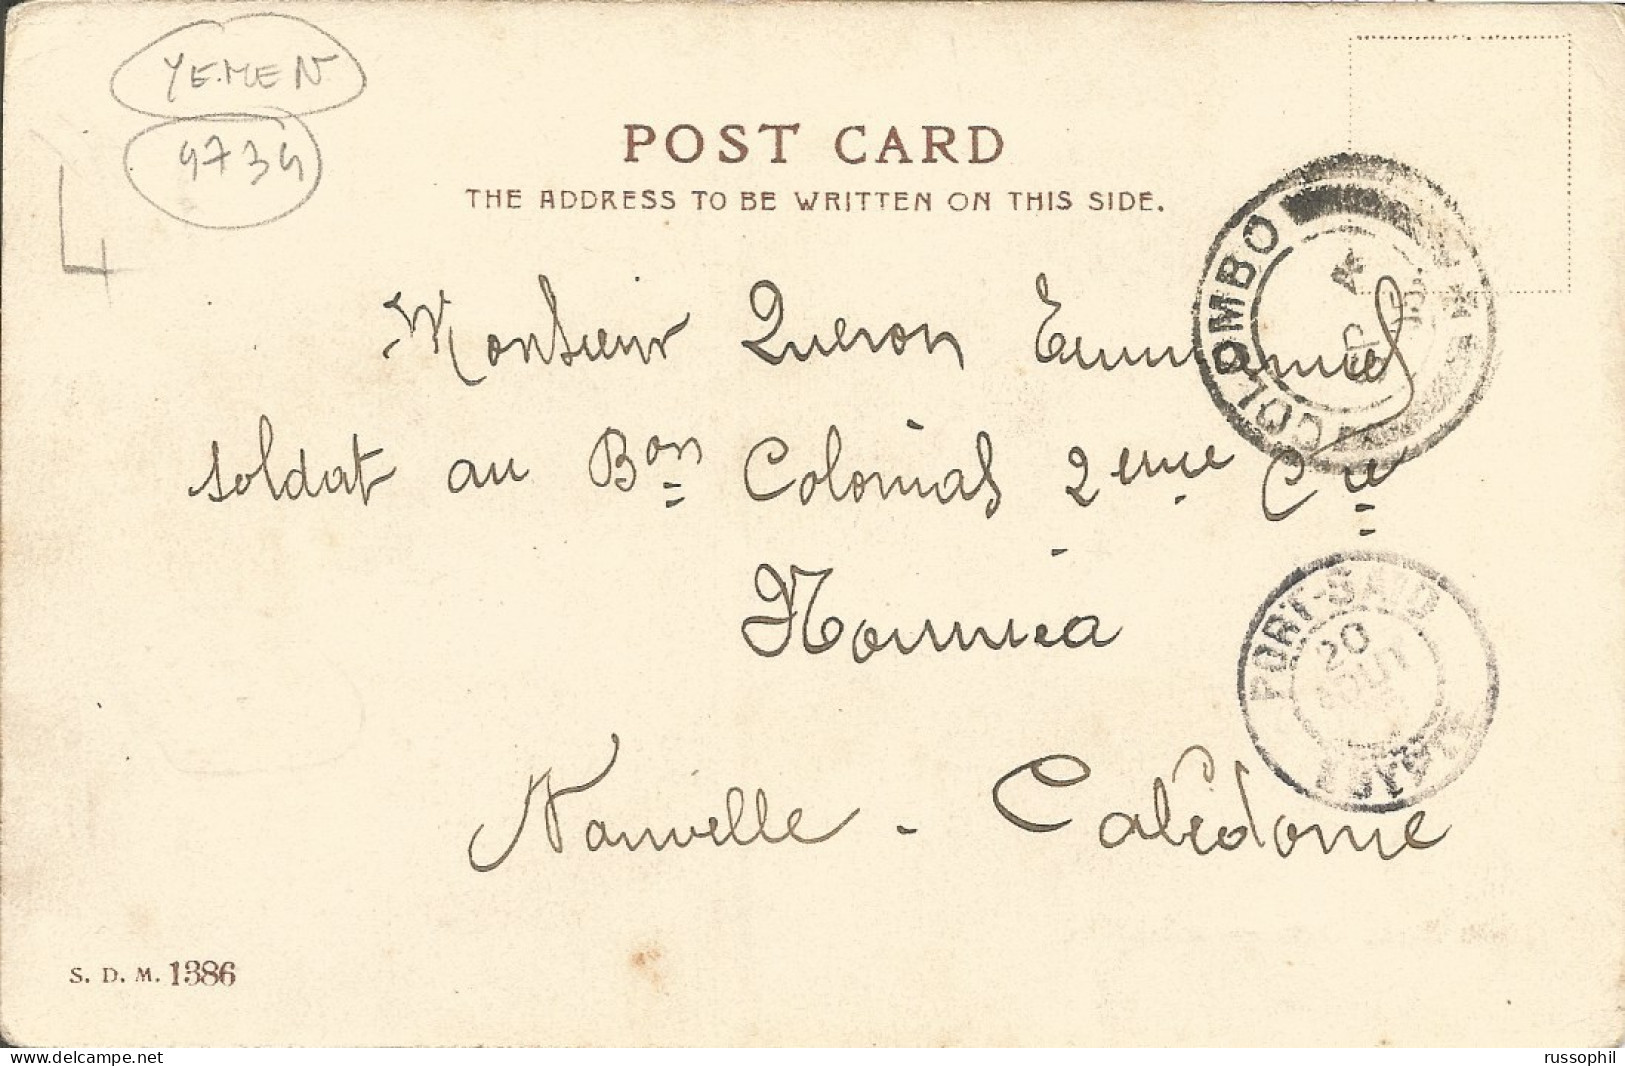 YEMEN
9739
POST CARD
THE ADDRESS TO BE WRITTEN ON THIS SIDE.
COLOMBO
Monsieur Queron Emmanuel
soldat au Bon Colonial 2eme Cie
Nouméa
PORT-SAID
20
AOUT
Nouvelle - Calédonie
S. D. M. 1386
www.delcampe.net
russophil